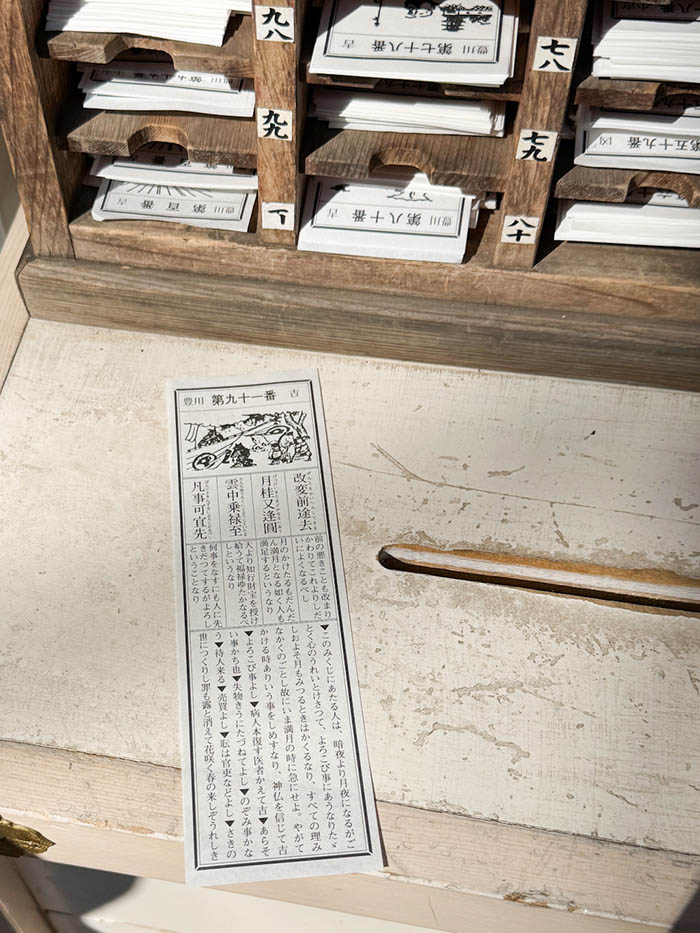 九八
九九
下
七八
七九
八十
豊川 第七十八番 吉
豊川 第百番 吉
豊川 第八十番
第五十九番 凶
豊川 第九十一番 吉
改変前途去、
前の悪きことも改まり
かわりてこれよりしだ
いによくなるべし
月桂又逢圓
月のかけたるもだんだ
ん満月となる如く人も
満足するというなり
雲中乗禄至
天より知行財宝を授け
給うて福禄ゆたかなるべ
しというなり
凡事可宜先
何事をなすにも人に先
きだつてするがよろし
ということなり
▼このみくじにあたる人は、暗夜より月夜になるがご
とく心のうれいとけさつて、よろこび事にあうなりたゞ
しおよそ月もみつるときはかくるなり、すべての理み
なかくのごとし故にいま満月の時に急にせよ。やがて
かける時ありいう事をしめすなり、神仏を信じて吉
▼よろこび事よし▼病人本復す医者かえて吉▼あらそ
い事かち也▼失物きうにたづねてよし▼のぞみ事かな
う▼待人来る▼売買よし▼は官吏などよし▼さきの
世につくりし罪も露と消えて花咲く春の来しぞうれしき